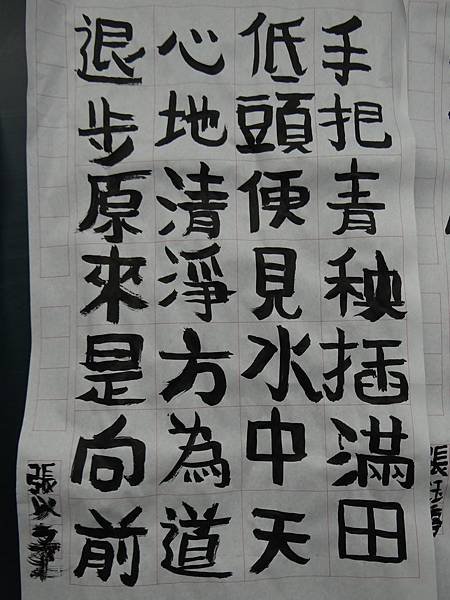 手把青秧插滿田
低頭便見水中天
心地清淨方為道
退步原來是向前
張以
張